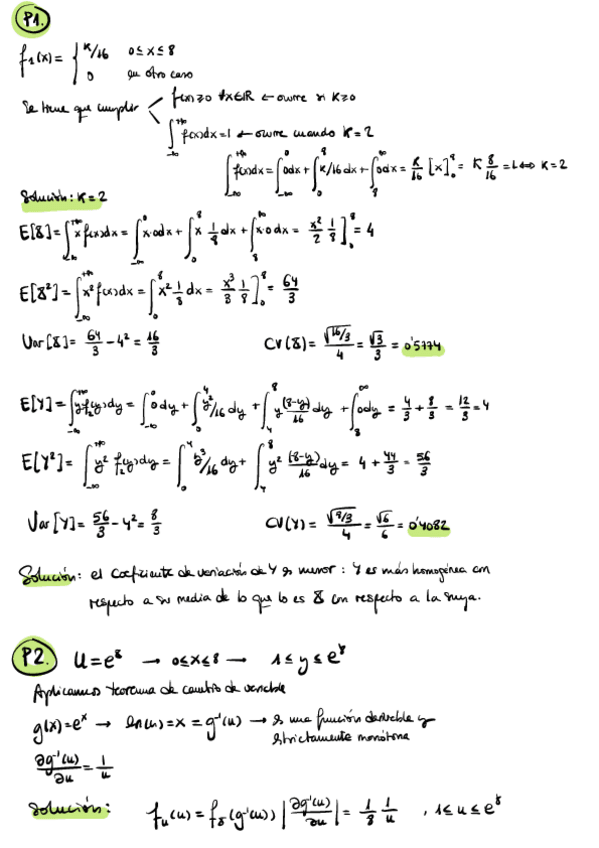 P1.
f₁(x) = { K/16 0≤x≤8
0 en otro caso
Se tiene que cumplir f(x)≥0 ∀x∈ℝ ← ocurre si K≥0
∫_{-∞}^{+∞} f(x)dx = 1 ← ocurre cuando K=2
∫_{-∞}^{+∞} f(x)dx = ∫_{-∞}^{0} 0dx + ∫_{0}^{8} K/16 dx + ∫_{8}^{∞} 0dx = K/16 [x]₀⁸ = K 8/16 = 1 ⟺ K=2
Solución: K=2
E[X] = ∫_{-∞}^{+∞} x f(x)dx = ∫_{-∞}^{0} x·0dx + ∫_{0}^{8} x 1/8 dx + ∫_{8}^{∞} x·0 dx = x²/2 1/8 ]₀⁸ = 4
E[X²] = ∫_{-∞}^{+∞} x² f(x)dx = ∫_{0}^{8} x² 1/8 dx = x³/3 1/8 ]₀⁸ = 64/3
Var[X] = 64/3 - 4² = 16/3 CV(X) = √(16/3)/4 = √3/3 = 0'5774
E[Y] = ∫_{-∞}^{+∞} y f₂(y)dy = ∫_{-∞}^{0} 0dy + ∫_{0}^{4} y²/16 dy + ∫_{4}^{8} y (8-y)/16 dy + ∫_{8}^{∞} 0dy = 4/3 + 8/3 = 12/3 = 4
E[Y²] = ∫_{-∞}^{+∞} y² f₂(y)dy = ∫_{0}^{4} y³/16 dy + ∫_{4}^{8} y² (8-y)/16 dy = 4 + 44/3 = 56/3
Var[Y] = 56/3 - 4² = 8/3 CV(Y) = √(8/3)/4 = √6/6 = 0'4082
Solución: el coeficiente de variación de Y es menor: Y es más homogénea con
respecto a su media de lo que lo es X con respecto a la suya.
P2. U = eˣ → 0≤x≤8 → 1≤y≤e⁸
Aplicamos teorema de cambio de variable
g(x)=eˣ → ln(u) = x = g⁻¹(u) → es una función derivable y
estrictamente monótona
∂g⁻¹(u)/∂u = 1/u
Solución: f_u(u) = f_X(g⁻¹(u)) |∂g⁻¹(u)/∂u| = 1/8 1/u , 1≤u≤e⁸